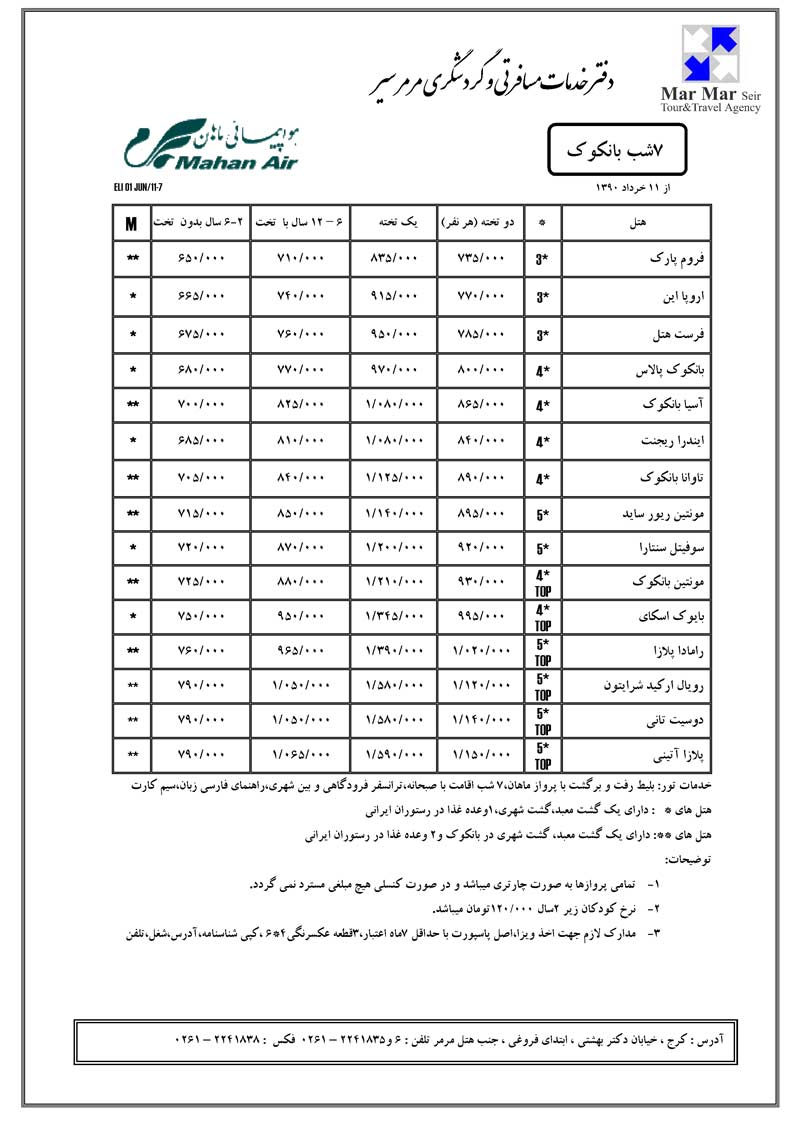 Mar Mar Seir
Tour&Travel Agency
دفتر خدمات مسافرتی و گردشگری مرمر سیر
هواپیمائی ماهان
Mahan Air
۷شب بانکوک
از ۱۱ خرداد ۱۳۹۰
ELI 01 JUN/11-7
هتل * دو تخته (هر نفر) یک تخته ۶ – ۱۲ سال با تخت ۲-۶ سال بدون تخت M
فروم پارک 3* ۷۳۵/۰۰۰ ۸۳۵/۰۰۰ ۷۱۰/۰۰۰ ۶۵۰/۰۰۰ **
اروپا این 3* ۷۷۰/۰۰۰ ۹۱۵/۰۰۰ ۷۴۰/۰۰۰ ۶۶۵/۰۰۰ *
فرست هتل 3* ۷۸۵/۰۰۰ ۹۵۰/۰۰۰ ۷۶۰/۰۰۰ ۶۷۵/۰۰۰ *
بانکوک پالاس 4* ۸۰۰/۰۰۰ ۹۷۰/۰۰۰ ۷۷۰/۰۰۰ ۶۸۰/۰۰۰ *
آسیا بانکوک 4* ۸۶۵/۰۰۰ ۱/۰۸۰/۰۰۰ ۸۲۵/۰۰۰ ۷۰۰/۰۰۰ **
ایندرا ریجنت 4* ۸۴۰/۰۰۰ ۱/۰۸۰/۰۰۰ ۸۱۰/۰۰۰ ۶۸۵/۰۰۰ *
تاوانا بانکوک 4* ۸۹۰/۰۰۰ ۱/۱۲۵/۰۰۰ ۸۴۰/۰۰۰ ۷۰۵/۰۰۰ **
مونتین ریور ساید 5* ۸۹۵/۰۰۰ ۱/۱۴۰/۰۰۰ ۸۵۰/۰۰۰ ۷۱۵/۰۰۰ **
سوفیتل سنتارا 5* ۹۲۰/۰۰۰ ۱/۲۰۰/۰۰۰ ۸۷۰/۰۰۰ ۷۲۰/۰۰۰ *
مونتین بانکوک 4* TOP ۹۳۰/۰۰۰ ۱/۲۱۰/۰۰۰ ۸۸۰/۰۰۰ ۷۲۵/۰۰۰ **
بایوک اسکای 4* TOP ۹۹۵/۰۰۰ ۱/۳۴۵/۰۰۰ ۹۵۰/۰۰۰ ۷۵۰/۰۰۰ *
رامادا پلازا 5* TOP ۱/۰۲۰/۰۰۰ ۱/۳۹۰/۰۰۰ ۹۶۵/۰۰۰ ۷۶۰/۰۰۰ **
رویال ارکید شرایتون 5* TOP ۱/۱۲۰/۰۰۰ ۱/۵۸۰/۰۰۰ ۱/۰۵۰/۰۰۰ ۷۹۰/۰۰۰ **
دوسیت تانی 5* TOP ۱/۱۴۰/۰۰۰ ۱/۵۸۰/۰۰۰ ۱/۰۵۰/۰۰۰ ۷۹۰/۰۰۰ **
پلازا آتینی 5* TOP ۱/۱۵۰/۰۰۰ ۱/۵۹۰/۰۰۰ ۱/۰۶۵/۰۰۰ ۷۹۰/۰۰۰ **
خدمات تور: بلیط رفت و برگشت با پرواز ماهان،۷ شب اقامت با صبحانه،ترانسفر فرودگاهی و بین شهری،راهنمای فارسی زبان،سیم کارت
هتل های * : دارای یک گشت معبد،گشت شهری،۱وعده غذا در رستوران ایرانی
هتل های **: دارای یک گشت معبد، گشت شهری در بانکوک و۲ وعده غذا در رستوران ایرانی
توضیحات:
۱- تمامی پروازها به صورت چارتری میباشد و در صورت کنسلی هیچ مبلغی مسترد نمی گردد.
۲- نرخ کودکان زیر ۲سال ۱۲۰/۰۰۰تومان میباشد.
۳- مدارک لازم جهت اخذ ویزا،اصل پاسپورت با حداقل ۷ماه اعتبار،۳قطعه عکسرنگی۴*۶ ،کپی شناسنامه،آدرس،شغل،تلفن
آدرس : کرج ، خیابان دکتر بهشتی ، ابتدای فروغی ، جنب هتل مرمر تلفن : ۶ و۲۲۴۱۸۳۵ – ۰۲۶۱ فکس : ۲۲۴۱۸۳۸ – ۰۲۶۱